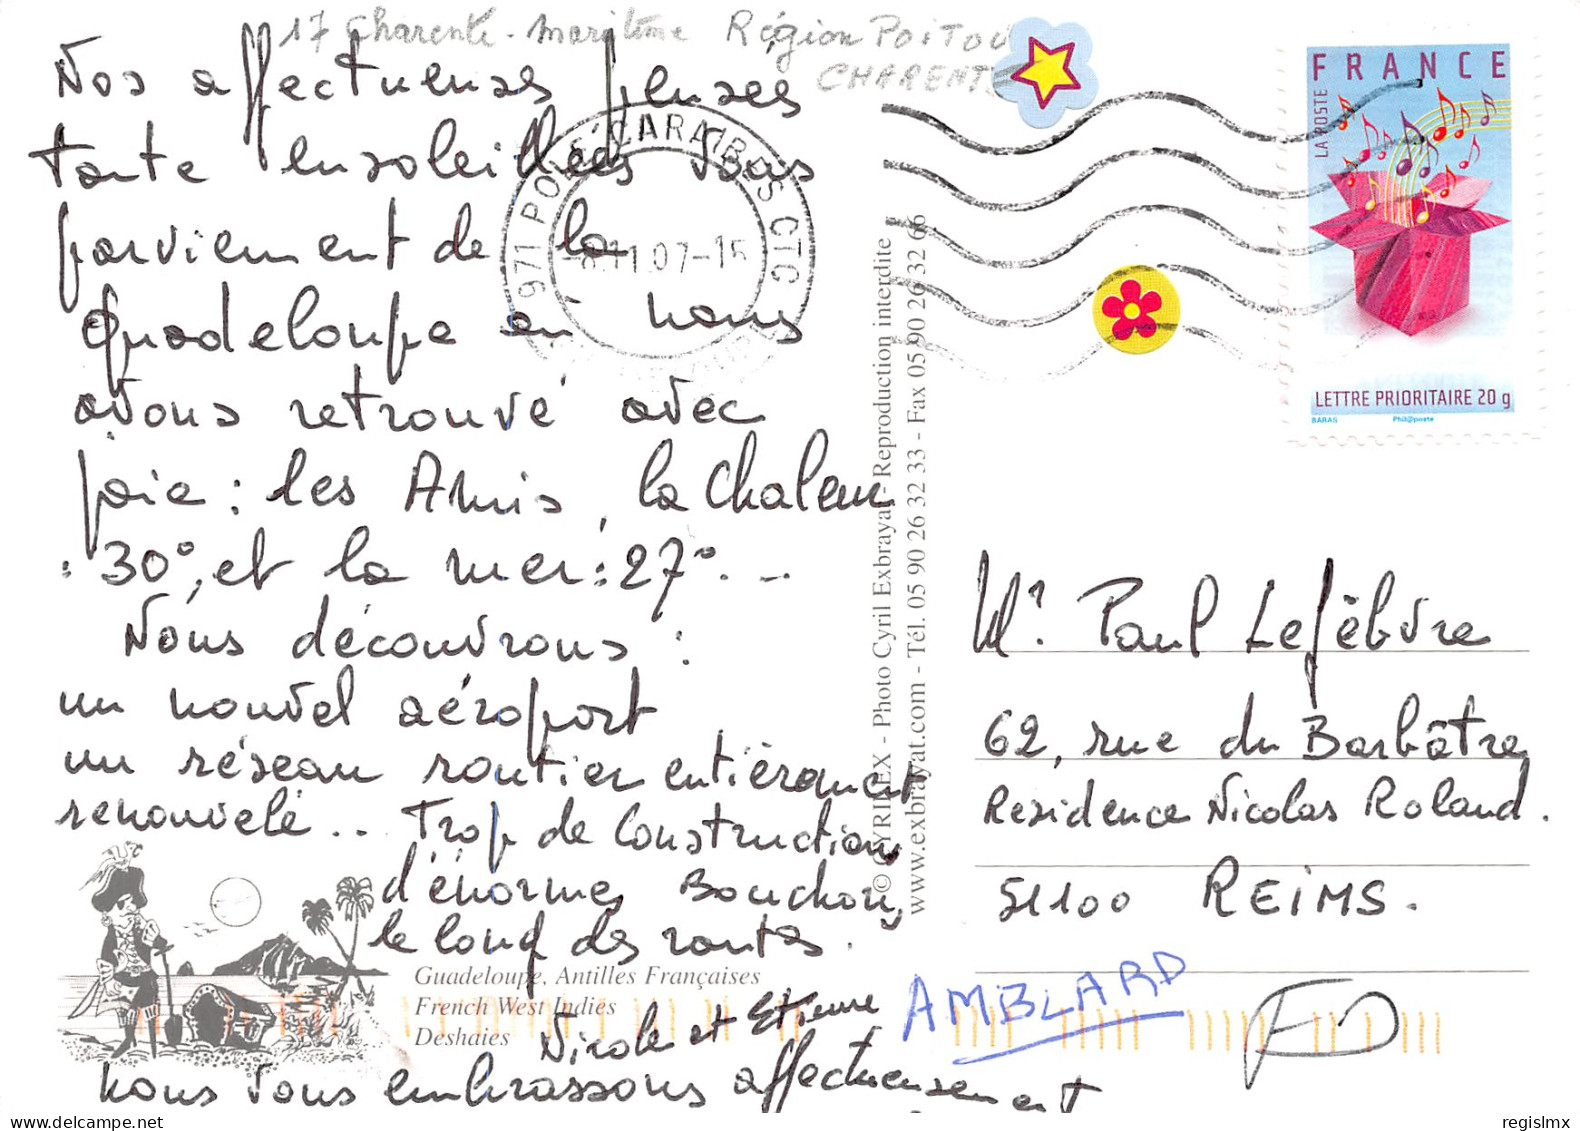 17 Charente-maritime Région POITOU
CHARENTE
Nos affectueuses pensées
toute ensoleillées vous
parviennent de la
Guadeloupe où nous
avons retrouvé avec
joie : les Amis, la Chaleur
: 30°, et la mer : 27° ...
Nous découvrons :
un nouvel aéroport
un réseau routier entièrement
renouvelé .. Trop de Construction,
d'énormes Bouchons,
le long des routes.
Nicole et Etienne
nous vous embrassons affectueusement
Guadeloupe, Antilles Françaises
French West Indies
Deshaies
971 POLE CARAIBES CTC
11.07-15
© CYRILEX - Photo Cyril Exbrayat - Reproduction interdite
www.exbrayat.com - Tél. 05 90 26 32 33 - Fax 05 90 26 32 66
FRANCE
LA POSTE
LETTRE PRIORITAIRE 20 g
BARAS Phil@poste
Mr. Paul Lefèbvre
62, rue du Barbâtre
Résidence Nicolas Roland.
51100 REIMS.
AMBLARD
regislmx